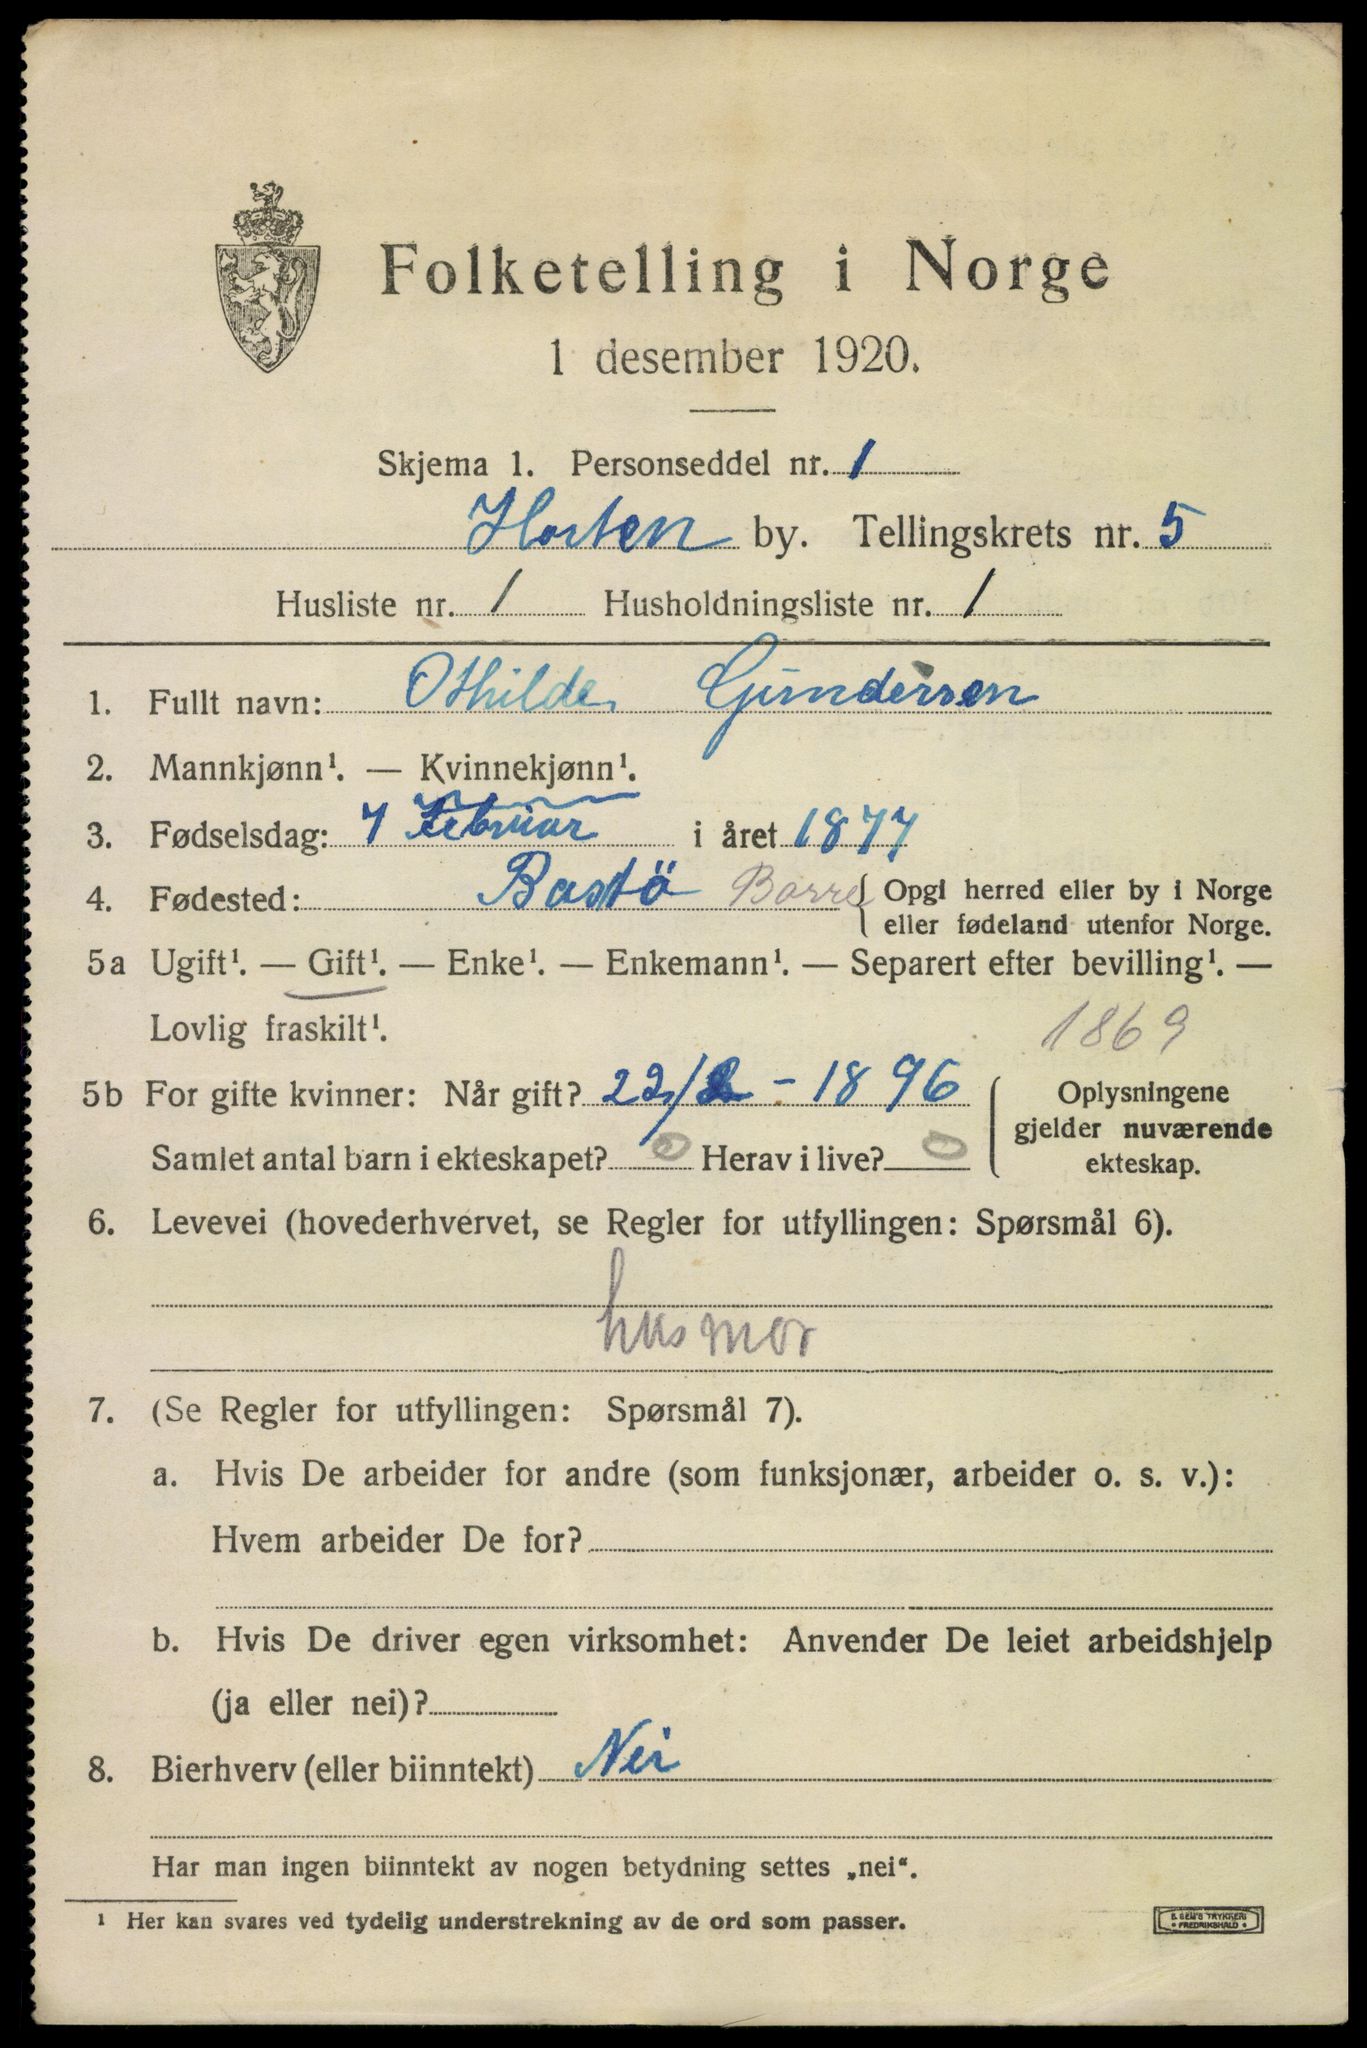 Folketelling i Norge
1 desember 1920.
Skjema 1. Personseddel nr. 1
Horten by. Tellingskrets nr. 5
Husliste nr. 1 Husholdningsliste nr. 1
1. Fullt navn: Othilde Gundersen
2. Mannkjønn¹. — Kvinnekjønn¹.
3. Fødselsdag: 7 Februar i året 1877
4. Fødested: Bastö Borre { Opgi herred eller by i Norge
eller fødeland utenfor Norge.
5a Ugift¹. — Gift¹. — Enke¹. — Enkemann¹. — Separert efter bevilling¹. —
Lovlig fraskilt¹. 1869
5b For gifte kvinner: Når gift? 22/2 - 1896
Samlet antal barn i ekteskapet? 0 Herav i live? 0
Oplysningene
gjelder nuværende
ekteskap.
6. Levevei (hovederhvervet, se Regler for utfyllingen: Spørsmål 6).
husmor
7. (Se Regler for utfyllingen: Spørsmål 7).
a. Hvis De arbeider for andre (som funksjonær, arbeider o. s. v.):
Hvem arbeider De for?
b. Hvis De driver egen virksomhet: Anvender De leiet arbeidshjelp
(ja eller nei)?
8. Bierhverv (eller biinntekt) Nei
Har man ingen biinntekt av nogen betydning settes „nei“.
¹ Her kan svares ved tydelig understrekning av de ord som passer.
E. SEM'S TRYKKERI
• FREDRIKSHALD •